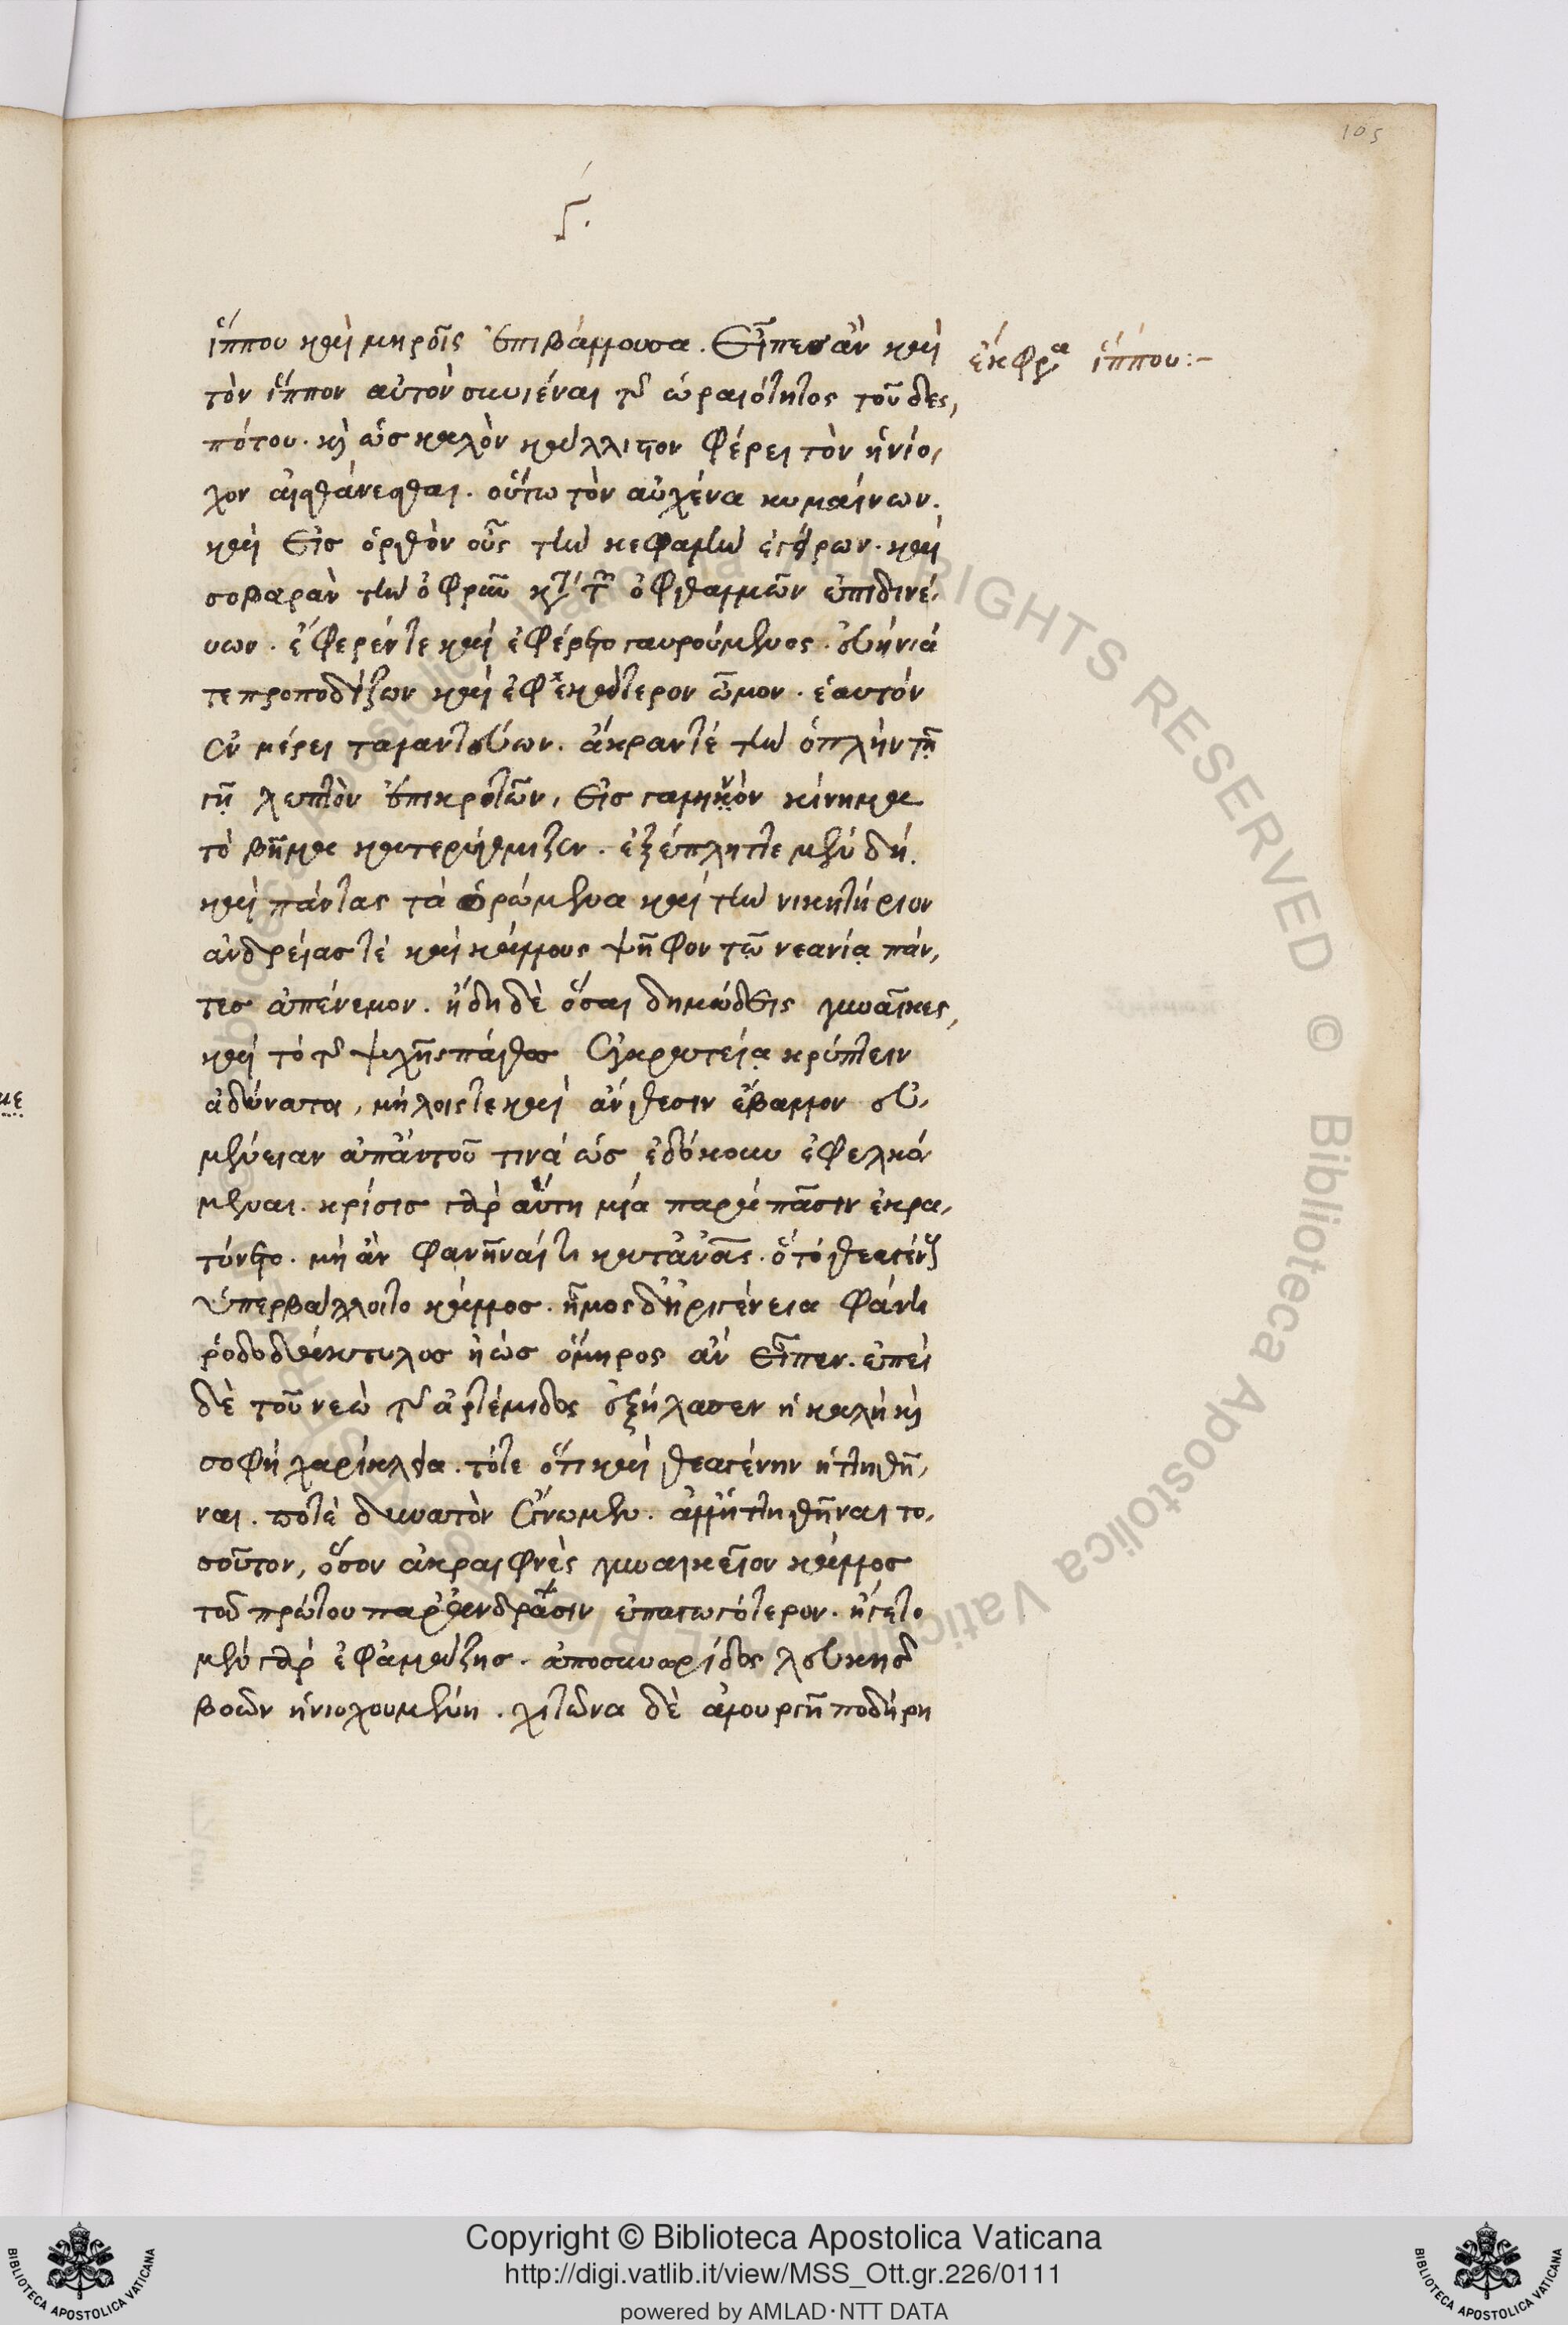 ϛ´.
ἵππου καὶ μηροῖς ἐπιβάλλουσα. εἶπεσ ἂν καὶ
τὸν ἵππον αὐτὸν συνιέναι τῆς ὡραιότητος τοῦ δες,
πότου. καὶ ὡσ καλὸν κάλλιστον φέρει τὸν ἡνίο,
χον αἰσθάνεσθαι. οὕτω τὸν αὐχένα κυμαίνων.
καὶ εἰσ ὀρθὸν οὖς τὴν κεφαλὴν ἐγείρων. καὶ
σοβαρὰν τὴν ὀφρῦν κατὰ τῶν ὀφθαλμῶν ἐπιδινεύ,
υων. ἔφερέν τε καὶ ἐφέρετο γαυρούμενος. εὐήνιά
τε προποδίζων καὶ ἐφ' ἑκάτερον ὦμον. ἑαυτὸν
ἐν μέρει ταλαντεύων. ἄκραν τέ τὴν ὁπλὴν τῇ
γῇ λεπτὸν ἐπικροτῶν, εἰσ γαληνὸν κίνημα
τὸ βῆμα κατερύθμιζεν. ἐξέπληττε μὲν δή.
καὶ πάντας τὰ ὁρώμενα καὶ τὴν νικητήριον
ἀνδρείασ τὲ καὶ κάλλους ψῆφον τῷ νεανίᾳ πάν,
τεσ ἀπένεμον. ἤδη δὲ ὅσαι δημώδεις γυναῖκες,
καὶ τὸ τῆς ψυχῆς πάθοσ ἐγκρατείᾳ κρύπτειν
ἀδύνατοι, μήλοις τε καὶ ἄνθεσιν ἔβαλλον εὐ,
μένειαν ἀπ' αὐτοῦ τινά ὡς ἐδόκουν ἐφελκό
μεναι. κρίσισ γὰρ αὕτη μία παρὰ πᾶσιν ἐκρα,
τύνετο. μὴ ἂν φανῆναί τι κατ' ἀνθρώπους. ὃ τὸ θεαγένους
ὑπερβάλλοιτο κάλλοσ. ἦμος δ' ἠριγένεια φάνη
ῥοδοδάκτυλοσ ἠὼσ ὅμηρος ἂν εἶπεν. ἐπεὶ
δὲ τοῦ νεὼ τῆς ἀρτέμιδος ἐξήλασεν ἡ καλὴ καὶ
σοφὴ χαρίκλεια. τότε ὅτι καὶ θεαγένην ἡττηθῆ,
ναι. ποτὲ δυνατὸν ἔγνωμεν. ἀλλ' ἡττηθῆναι το,
σοῦτον, ὅσον ἀκραιφνὲς γυναικεῖον κάλλοσ
τοῦ πρώτου παρ' ἀνδράσιν ἐπαγωγότερον. ἤγετο
μὲν γὰρ ἐφ' ἁμάξης. ἀπὸ συνωρίδος λευκῆσ
βοῶν ἡνιοχουμένη. χιτῶνα δὲ ἁλουργῆ ποδήρη
ἔκφρα ἵππου:-
105
Copyright © Biblioteca Apostolica Vaticana
http://digi.vatlib.it/view/MSS_Ott.gr.226/0111
powered by AMLAD·NTT DATA